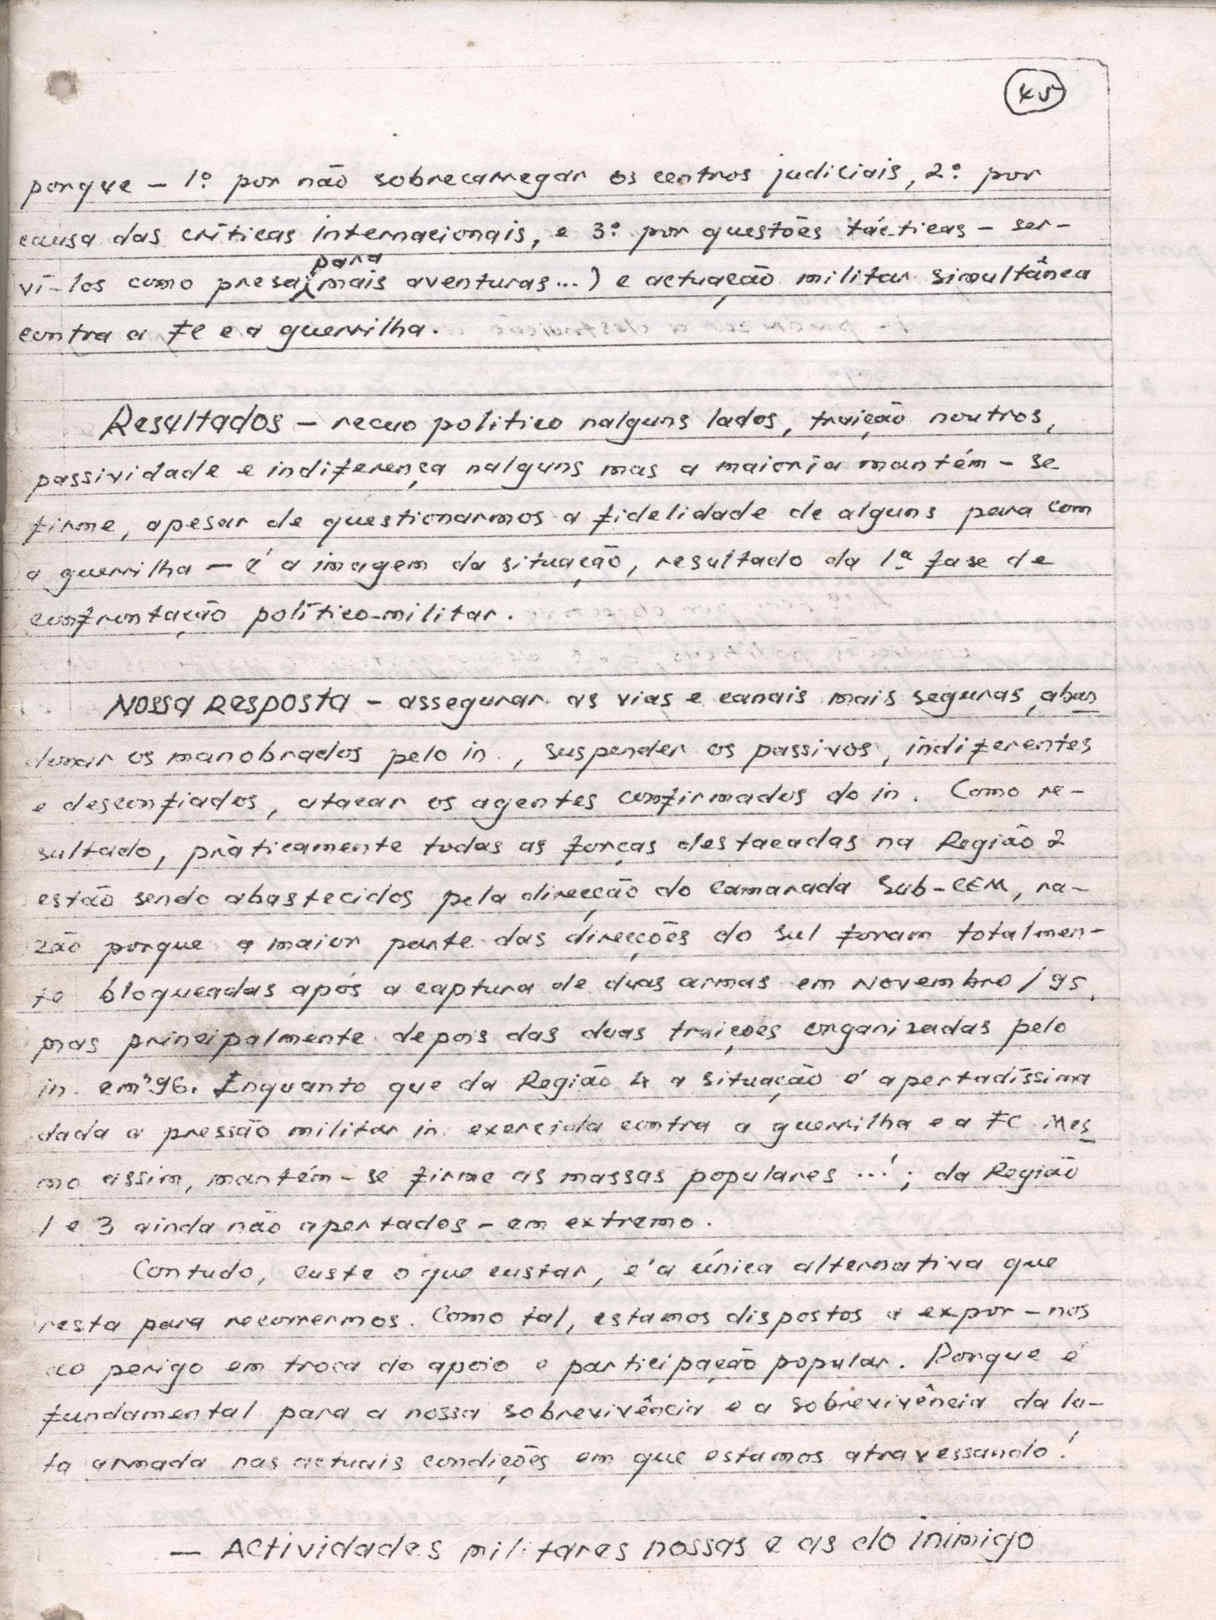 45
porque - 1º por não sobrecarregar os centros judiciais, 2º por
causa das críticas internacionais, e 3º por questões tácticas - ser-
para
ví-los como presas mais aventuras...) e actuação militar simultânea
contra a FC e a guerrilha.
Resultados - recuo politico nalguns lados, traição noutros,
passividade e indiferença nalguns mas a maioria mantém-se
firme, apesar de questionarmos a fidelidade de alguns para com
a guerrilha - é a imagem da situação, resultado da 1ª fase de
confrontação político-militar.
Nossa Resposta - assegurar as vias e canais mais seguras, aban
donar os manobrados pelo in., suspender os passivos, indiferentes
e desconfiados, atacar os agentes confirmados do in. Como re-
sultado, pràticamente todas as forças destacadas na Região 2
estão sendo abastecidos pela direcção do camarada Sub-CEM, ra-
zão porque a maior parte das direcções do sul foram totalmen-
te bloqueadas após a captura de duas armas em Novembro/95,
mas principalmente depois das duas traições organizadas pelo
in. em '96. Enquanto que da Região 4 a situação é apertadíssima
dada a pressão militar in. exercida contra a guerrilha e a FC. Mes
mo assim, mantém-se firme as massas populares ...!; da Região
1 e 3 ainda não apertados - em extremo.
Contudo, custe o que custar, é a única alternativa que
resta para recorrermos. Como tal, estamos dispostos a expor-nos
ao perigo em troca do apoio e participação popular. Porque é
fundamental para a nossa sobrevivência e a sobrevivência da lu-
ta armada nas actuais condições em que estamos atravessando!
- Actividades militares nossas e as do inimigo